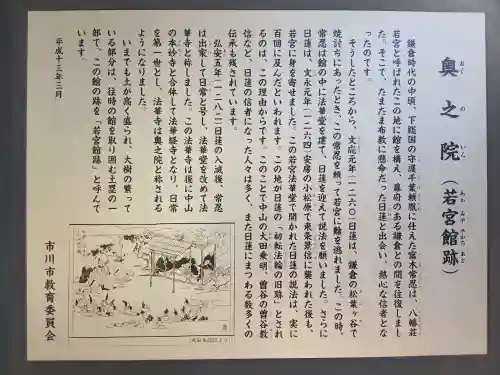 奥之院（若宮館跡）
おく の いん わか みや やかた あと
鎌倉時代の中頃、下総国の守護千葉頼胤に仕えた富木常忍は、八幡荘
若宮と呼ばれたこの地に館を構え、幕府のある鎌倉との間を往復しまし
た。そこで、たまたま布教に懸命だった日蓮と出会い、熱心な信者とな
ったのです。
そうしたところから、文応元年（一二六〇）日蓮は、鎌倉の松葉ヶ谷で
焼討ちにあったとき、この常忍を頼って若宮の館を逃れました。この時、
常忍は館の中に法華堂を建て、日蓮を迎えて説法を願いました。さらに
日蓮は、文永元年（一二六四）安房の小松原で東条景信に襲われた後も、
若宮に身を寄せました。この若宮法華堂で開かれた日蓮の説法は、実に
百回に及んだといわれます。この地が日蓮の「初転法輪の旧跡」とされ
るのは、この理由からです。このことで中山の大田乗明、曽谷の曽谷教
信など、日蓮の信者になった人々は多く、また日蓮にまつわる数多くの
伝承も残されています。
弘安五年（一二八二）日蓮の入滅後、常忍
は出家して日常と号し、法華堂を改めて法
華寺と称しました。この法華寺は後に中山
の本妙寺と合体して法華経寺となり、日常
を第一世とし、法華寺は奥之院と称される
ようになりました。
いまでも土が高く盛られ、大樹の繁って
いる部分は、往時の館を取り囲む土塁の一
部で、この館の跡を「若宮館跡」と呼んで
います。
平成十三年三月
市川市教育委員会